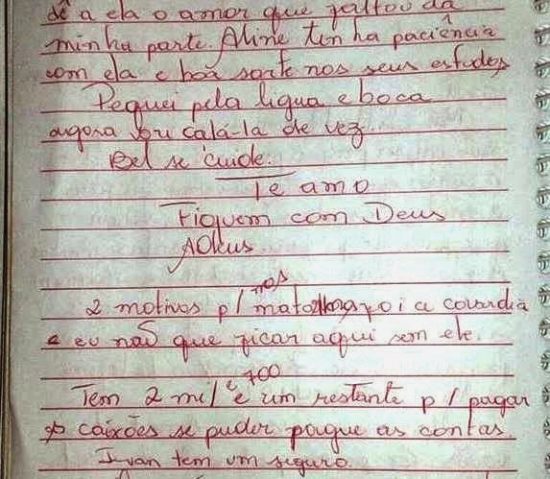 dê a ela o amor que faltou da
minha parte. Aline tenha paciência
com ela e boa sorte nos seus estudos
Pequei pela ligua e boca
angora vou calá-la de vez.
Bel se cuide.
Te amo
Fiquem com Deus
Adeus
nos
2 motivos p/ foi a covardia
e eu não que ficar aqui sem ele.
Tem 2 mil e 700 e um restante p/ pagar
caixões se puder pague as contas
Ivan tem um seguro